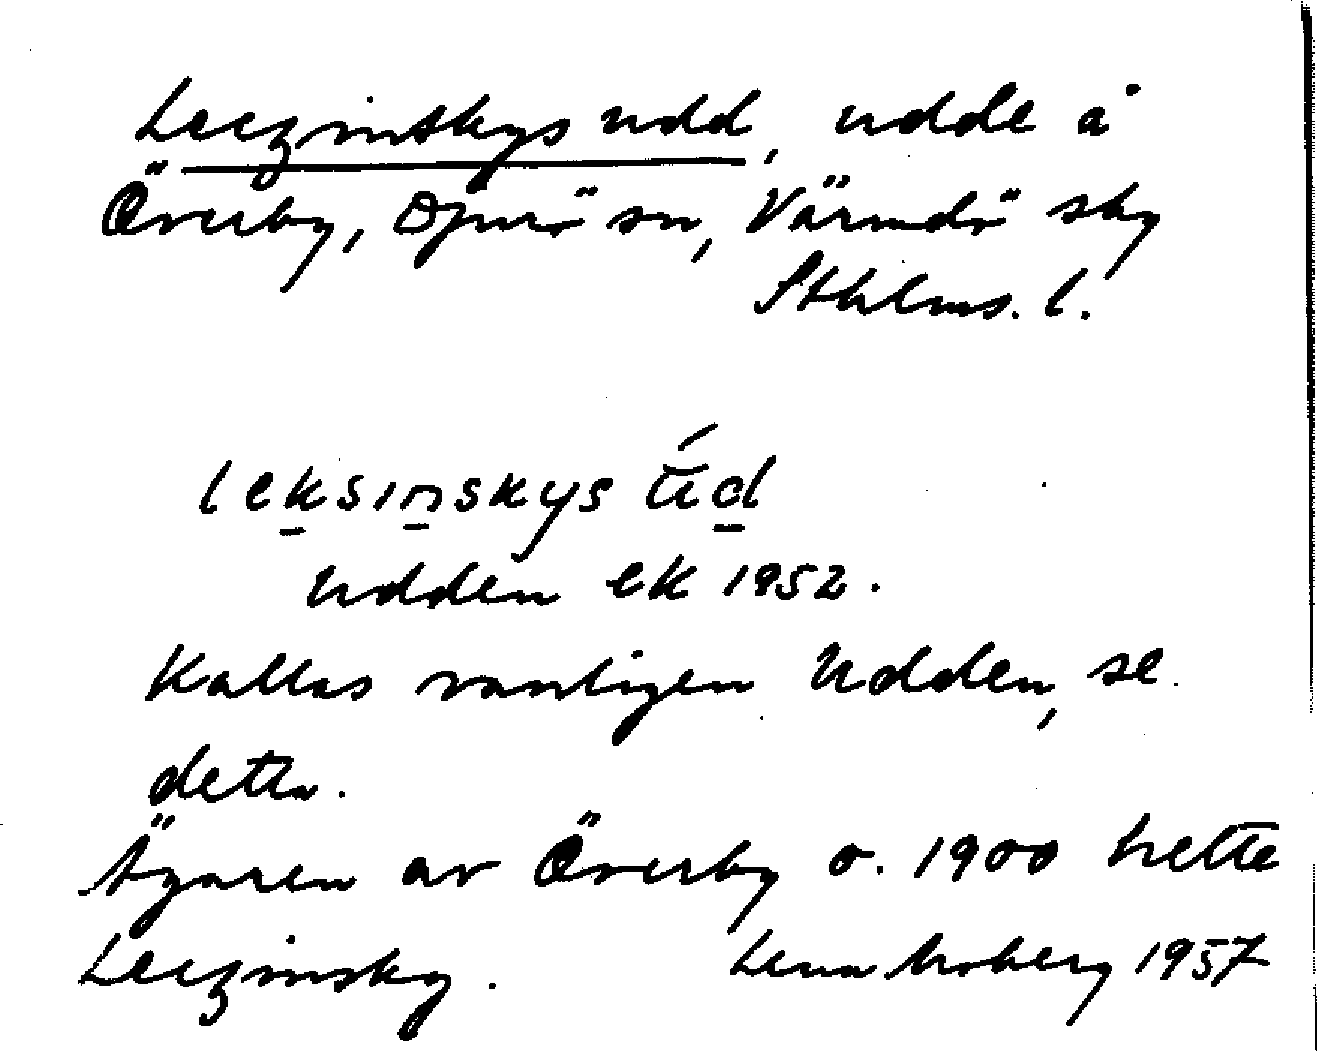 Leczinskys udd, udde å
Överby, Djurö sn, Värmdö sky
Sthlms. l.
leksinskys ùd
Udden ek 1952.
Kallas vanligen Udden, se
detta.
Ägaren av Överby o. 1900 hette
Leczinsky. Lena Moberg 1957